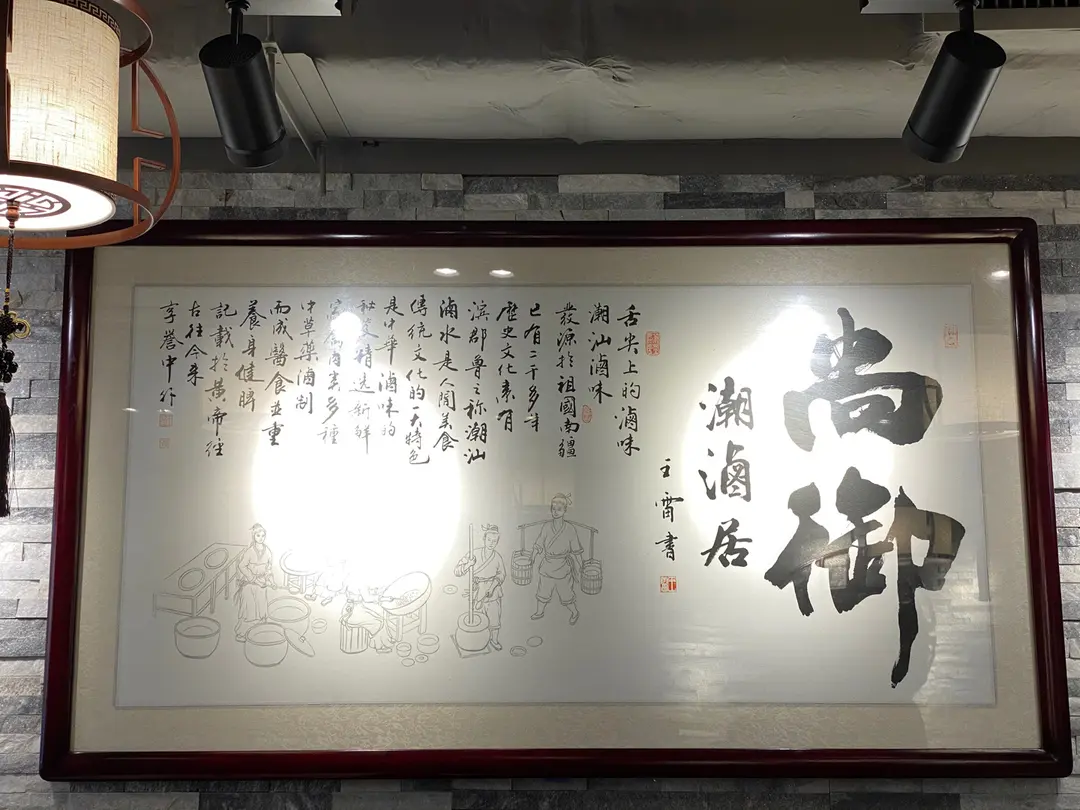 尚御
潮滷居
王雷書
舌尖上的滷味
潮汕滷味
發源於祖國南疆
已有二千多年
歷史文化素有
濱郡魯之稱潮汕
滷水是人間美食
傳統文化的一大特色
是中華滷味的
精选新鮮
多種
中草藥滷制
而成醫食並重
養身健脾
記載於黃帝經
古往今來
享譽中外